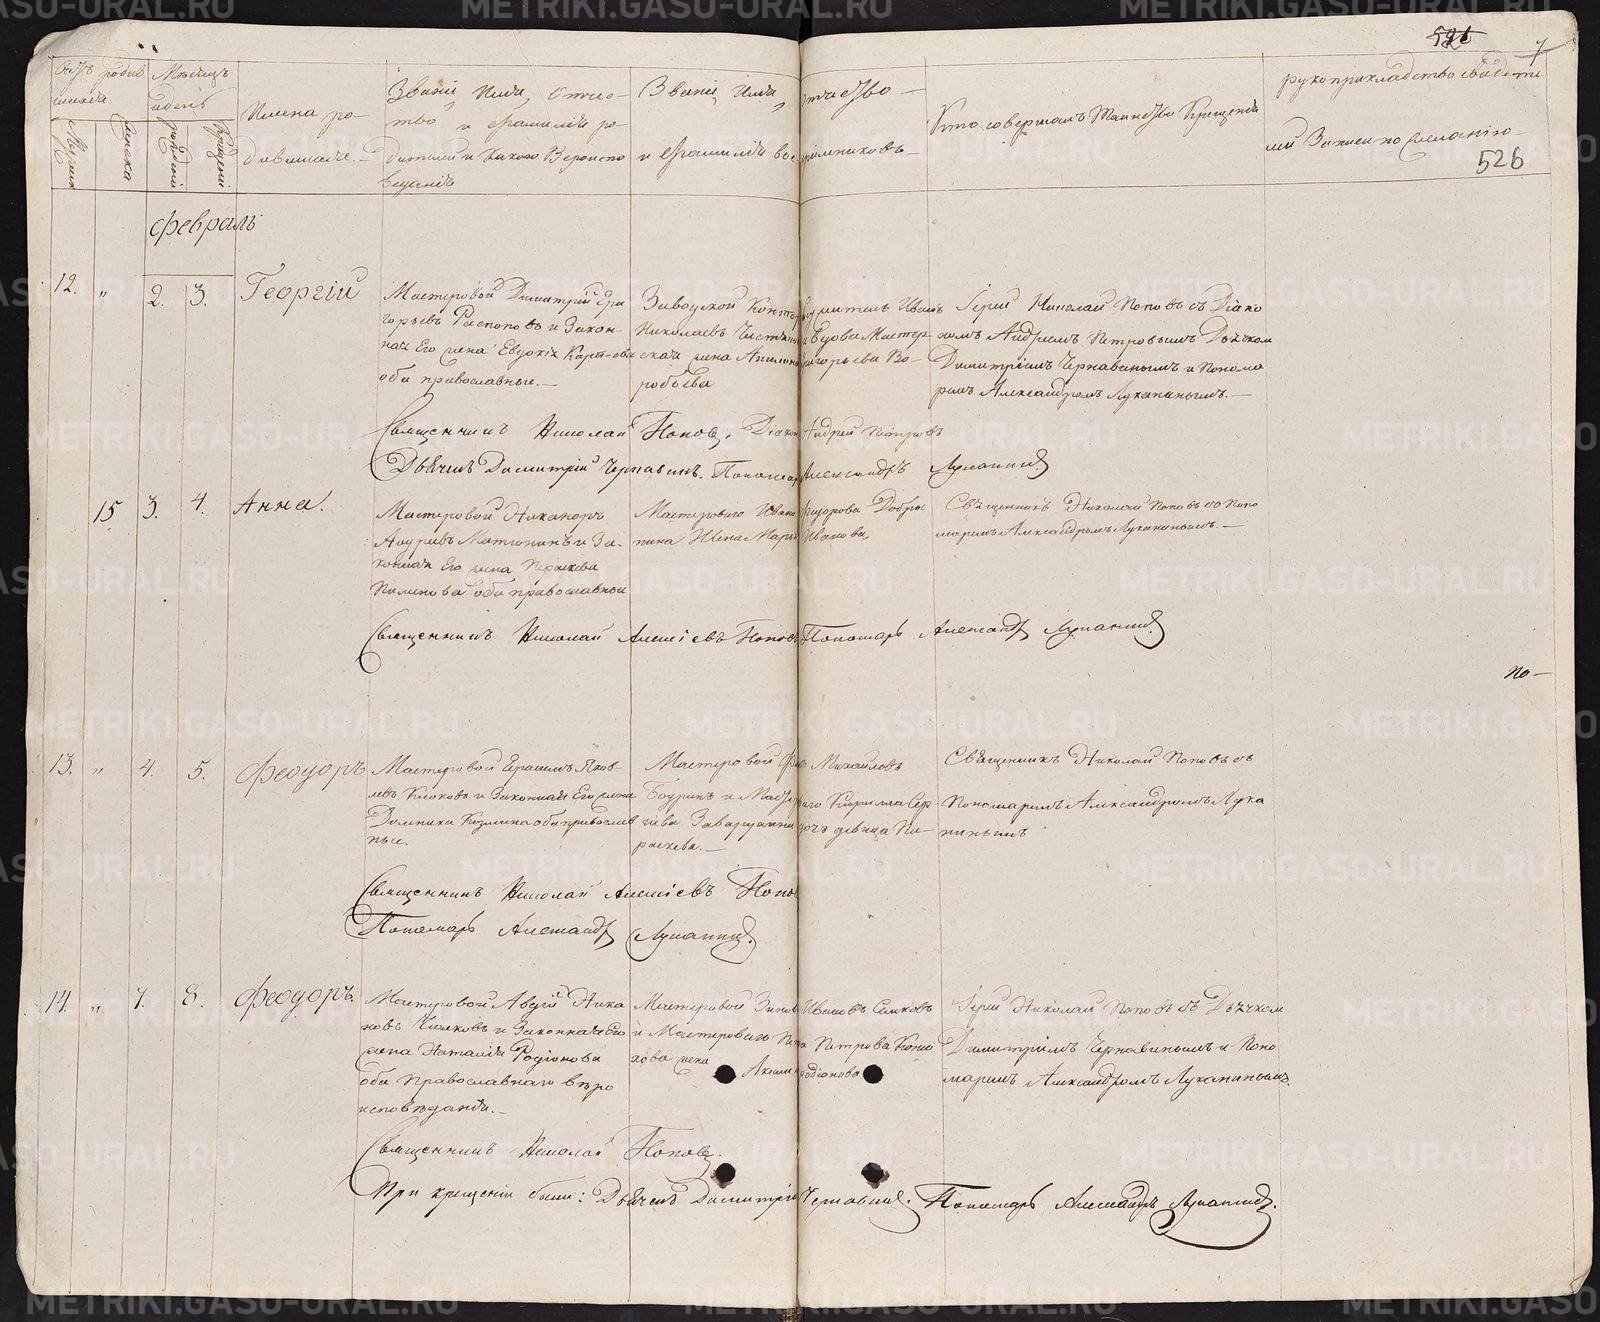 526
7
Счетъ родив
шихся
Мужеска
женска
Мѣсяцъ
и день
рожденія
крещенія
Имена ро-
дившихся.—
Званіе, Имя, Отче-
ство и фамилія ро-
дителей и какого Вѣроиспо
веданія
Званіе, Имя, отчество —
и фамилія воспріемниковъ—
Кто совершалъ Таинство Крещенія
рукоприкладство свидете
лей Записи по желанію
526
Февраль
12. „ 2. 3. Георгій
Мастеровой Димитрій Гри
горьевъ Распоповъ и Закон-
ная Его жена Евдокія
оба православные.—
Заводской Иванъ
Николаевъ и Вдова Мастер-
ская жена Григорьева Во-
робьева
Іерей Николай Поповъ съ Діако
номъ Андреемъ Петровымъ Дьячком
Димитріемъ Чернавинымъ и Понома
ремъ Александромъ Луканинымъ.—
Священникъ Николай Поповъ, Діаконъ Андрей Петровъ
Дьячекъ Димитрій Чернавинъ. Пономарь Александръ Луканинъ
15 3. 4. Анна.
Мастеровой Никаноръ
и За-
конная Его жена Параскева
оба православныи
Мастероваго Ивана Добры
нина Жена Марья Иванова.
Священникъ Николай Поповъ со Поно
маремъ Александромъ Луканинымъ.—
Священникъ Николай Алексіевъ Поповъ Пономарь Александръ Луканинъ.
по—
13. „ 4. 5. Феодоръ
Мастеровой Герасимъ Яков-
левъ и Законная Его жена
Домника Козмина оба православ
ные.
Мастеровой Михайловъ
и Мастероваго Кирилла Сер-
гіева дочь девица Па-
раскева.—
Священникъ Николай Поповъ съ
Пономаремъ Александромъ Лука
нинымъ
Священникъ Николай Алексіевъ Поповъ
Пономарь Александръ Луканинъ.
14. „ 7. 8. Феодоръ.
Мастеровой Авдій Ника
новъ и Законная Его
жена Наталія Родіонова
оба Православнаго веро
исповѣданія.—
Мастеровой Ивановъ
и Мастероваго Петрова
жена Родіонова
Іерей Николай Поповъ съ Дьячком
Димитріемъ Чернавинымъ и Поно
маремъ Александромъ Луканинымъ.
Священникъ Николай Поповъ.
При крещеніи были: Дьячекъ Димитрій Чернавинъ. Пономарь Александръ Луканинъ.
METRIKI.GASO-URAL.RU